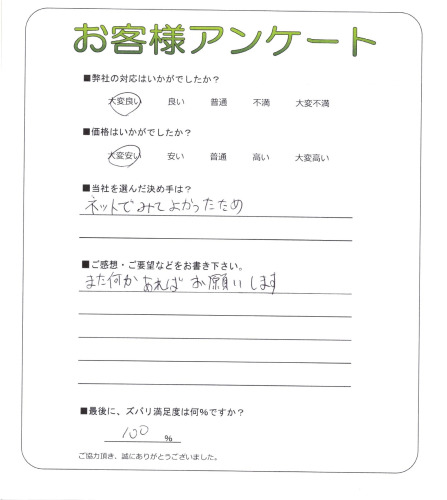 お客様アンケート
■弊社の対応はいかがでしたか？
大変良い 良い 普通 不満 大変不満
■価格はいかがでしたか？
大変安い 安い 普通 高い 大変高い
■当社を選んだ決め手は？
ネットでみてよかったため
■ご感想・ご要望などをお書き下さい。
また何かあればお願いします
■最後に、ズバリ満足度は何％ですか？
100 ％
ご協力頂き、誠にありがとうございました。